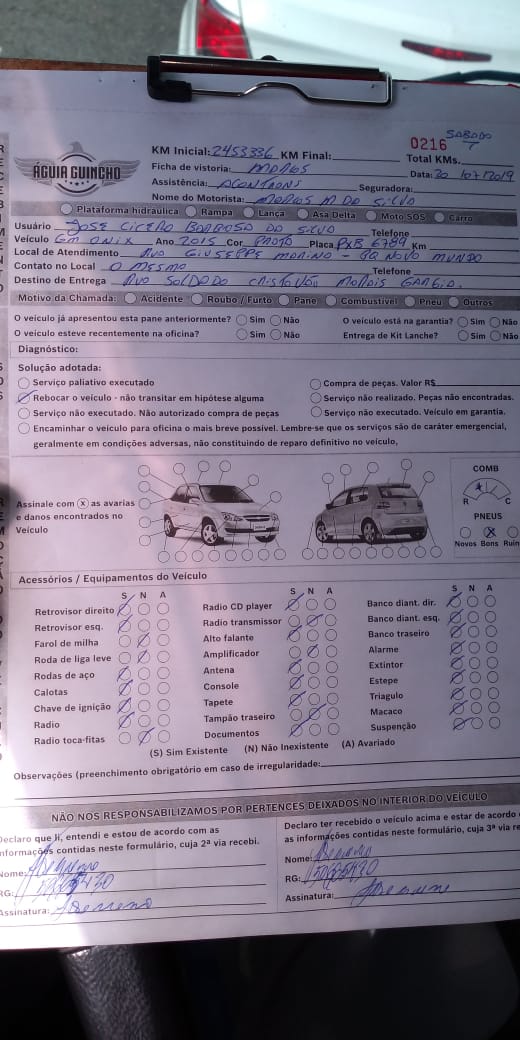 SABADO
0216
ÁGUIA GUINCHO
KM Inicial: 2453336 KM Final: Total KMs.
Ficha de vistoria: Data: 20/07/2019
Assistência: Seguradora:
Nome do Motorista:
Plataforma hidráulica Rampa Lança Asa Delta Moto SOS Carro
Usuário JOSE CICERO BARBOSA DO SILVO Telefone
Veículo GM ONIX Ano 2015 Cor PRATO Placa PXB 6789 Km
Local de Atendimento AVO GIUSEPPE MARINO - NOVO MUNDO
Contato no Local O MESMO Telefone
Destino de Entrega AVO SOLDODO CRISTOVÃO MORAIS
Motivo da Chamada: Acidente Roubo / Furto Pane Combustível Pneu Outros
O veículo já apresentou esta pane anteriormente? Sim Não O veículo está na garantia? Sim Não
O veículo esteve recentemente na oficina? Sim Não Entrega de Kit Lanche? Sim Não
Diagnóstico:
Solução adotada:
Serviço paliativo executado Compra de peças. Valor R$
Rebocar o veículo - não transitar em hipótese alguma Serviço não realizado. Peças não encontradas.
Serviço não executado. Não autorizado compra de peças Serviço não executado. Veículo em garantia.
Encaminhar o veículo para oficina o mais breve possível. Lembre-se que os serviços são de caráter emergencial,
geralmente em condições adversas, não constituindo de reparo definitivo no veículo,
Assinale com X as avarias
e danos encontrados no
Veículo
COMB
R C
PNEUS
Novos Bons Ruin
Acessórios / Equipamentos do Veículo
S N A S N A S N A
Retrovisor direito Radio CD player Banco diant. dir.
Retrovisor esq. Radio transmissor Banco diant. esq.
Farol de milha Alto falante Banco traseiro
Roda de liga leve Amplificador Alarme
Rodas de aço Antena Extintor
Calotas Console Estepe
Chave de ignição Tapete Triagulo
Radio Tampão traseiro Macaco
Radio toca-fitas Documentos Suspenção
(S) Sim Existente (N) Não Inexistente (A) Avariado
Observações (preenchimento obrigatório em caso de irregularidade:
NÃO NOS RESPONSABILIZAMOS POR PERTENCES DEIXADOS NO INTERIOR DO VEÍCULO
Declaro que li, entendi e estou de acordo com as
informações contidas neste formulário, cuja 2ª via recebi.
Nome:
RG:
Assinatura:
Declaro ter recebido o veículo acima e estar de acordo
as informações contidas neste formulário, cuja 3ª via re
Nome:
RG:
Assinatura: